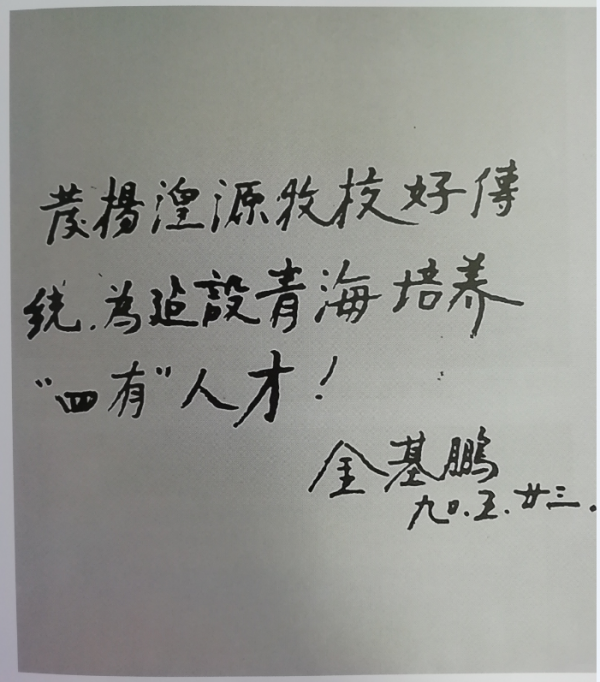 發揚湟源牧校好傳
統,為建設青海培养
“四有”人才!
金基鵬
九〇.五.廿三.